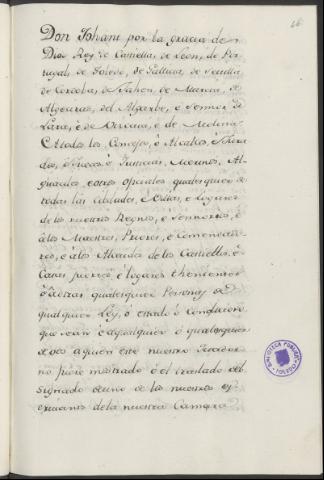 26
Don Johane por la gracia de
Dios Rey de Castiella, de Leon, de Por
tugal, de Toledo, de Gallicia, de Sevilla
de Cordoba, de Jahen, de Murcia, de
Algecira, del Algarbe, e Sennor de
Lara, e de Vizcaia, e de Molina
A todos los Concejos, é Alcaldes, é Jura
dos, é Jueces é Justicias, Merinos, Al-
guaciles, otros oficiales qualesquier de
todas las Cibdades, é Villas, é Logares
de los nuestros Regnos, é Sennorios, é
á los Maestres, Priores, é Comendado
res, é alos Alcaides de los Castiellos, é
Casas fuertes é logares
ó á otras qualesquier Personas de
qualquier Ley, ó estado ó Condicion
que sean é á qualquier ó qualesquier
de vos a quien este nuestro
no fuere mostrado ó el traslado del
signado de uno de los nuestros es
crivanos dela nuestra Camara
BIBLIOTECA PUBLICA